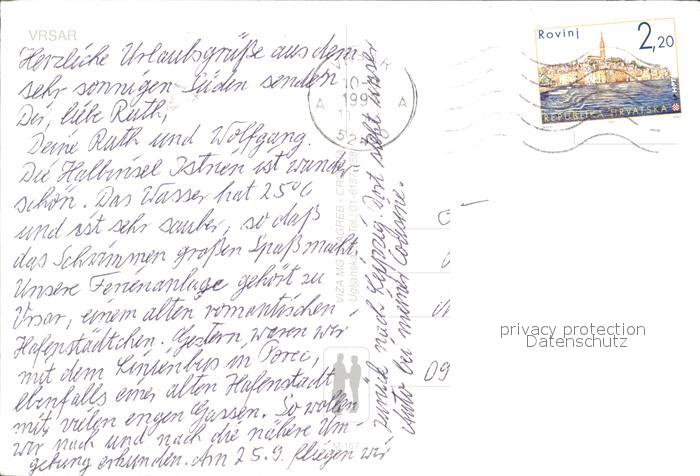 VRSAR
Herzliche Urlaubsgrüße aus dem
sehr sonnigen Süden senden
Dir, liebe Ruth,
Deine Ruth und Wolfgang.
Die Halbinsel Istrien ist wunder-
schön. Das Wasser hat 25°C
und ist sehr sauber, so daß
das Schwimmen großen Spaß macht.
Unsere Ferienanlage gehört zu
Vrsar, einem alten romantischen
Hafenstädtchen. Gestern waren wir
mit dem Linienbus in Porec,
ebenfalls einer alten Hafenstadt
mit vielen engen Gassen. So wollen
wir nach und nach die nähere Um-
gebung erkunden. Am 25.9. fliegen wir
zurück nach Leipzig. Dort steht unser
Auto bei meiner Cousine.
VIZA MG ZAGREB - CR
Tel.: 01
10
199
A A
52
Rovinj
2,20
REPUBLIKA HRVATSKA
09
privacy protection
Datenschutz